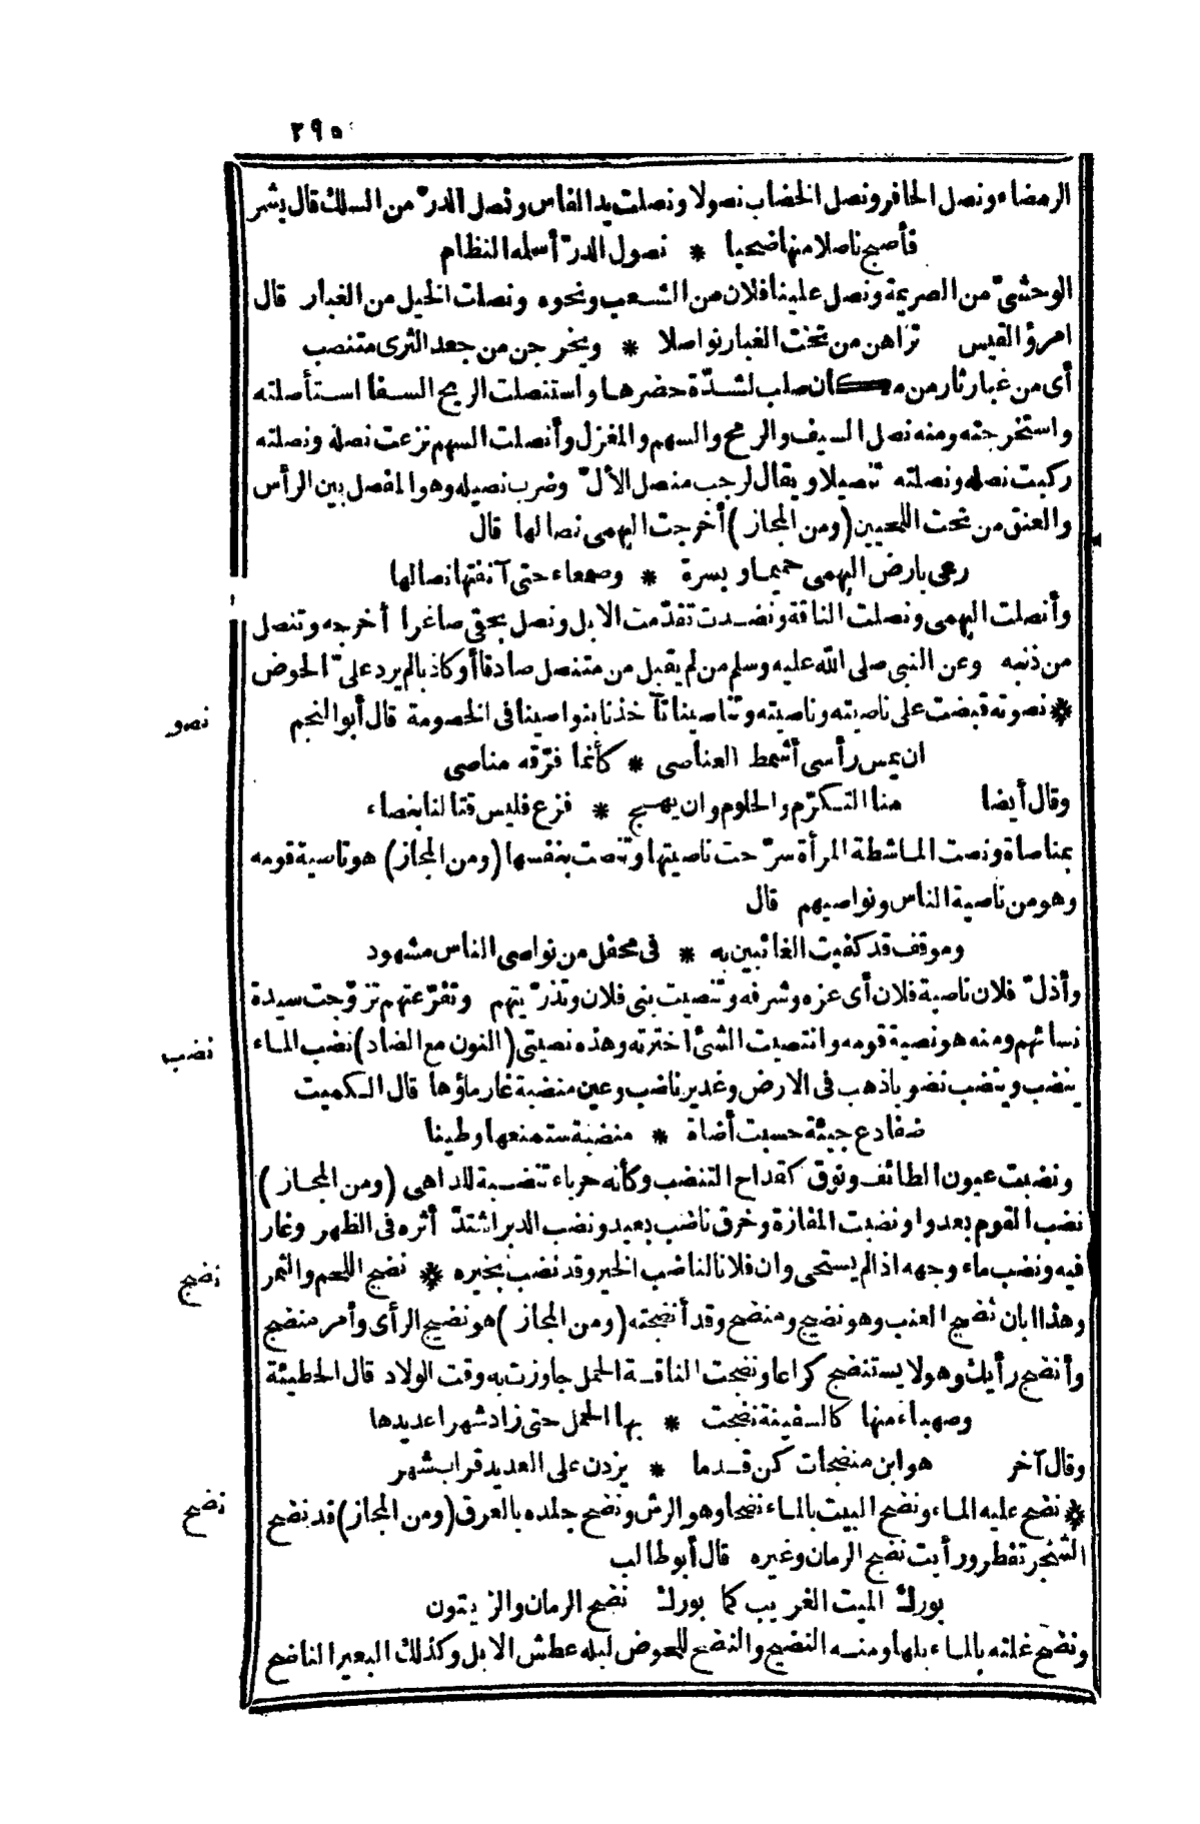 ٢٩٥
الرمضاء ونصل الحافر ونصل الخضاب نصولا ونصلت يد الفاس ونصل الدرّ من السلك قال بشر
فأصبح ناصلا منها ضحيا * نصول الدرّ أسله النظام
الوحشىّ من الصريمة ونصل علينا فلان من الشعب ونحوه ونصلت الخيل من الغبار قال
امرؤ القيس تراهن من تحت الغبار نواصلا * ويخرجن من جعد الثرى متنصب
أى من غبار ثار من مكان صلب لشدّة حضرها واستنصلت الريح السفا استأصلته
واستخرجته ومنه نصل السيف والرمح والسهم والمغزل وأنصلت السهم نزعت نصله ونصلته
ركبت نصله ونصلته تنصيلا ويقال لرجب منصل الألّ وضرب نصيله وهو المفصل بين الرأس
والعنق من تحت اللحيين (ومن المجاز) أخرجت البهمى نصالها قال
رعى بارض البهمى جميما وبسرة * وصمعاء حتى آنفتها نصالها
وأنصلت البهمى ونصلت الناقة ونضدت تقدّمت الابل ونصل بحقى صاغرا أخرجه وتنصل
من ذنبه وعن النبى صلى الله عليه وسلم من لم يقبل من متنصل صادقا أو كاذبا لم يرد علىّ الحوض
نصو
* نصوته قبضت على ناصيته وناصيته وتناصينا تآخذنا بنواصينا فى الخصومة قال أبو النجم
ان يمس رأسى أشمط العناصى * كأنما فرّقه مناصى
وقال أيضا منا التكرّم والحلوم وان يهج * فزع فليس قتالنا بنصاء
بمناصاة ونصت الماشطة المرأة سرّحت ناصيتها وتنصت بنفسها (ومن المجاز) هو ناسية قومه
وهو من ناصية الناس ونواصيهم قال
وموقف قد كفيت الغائبين به * فى محفل من نواصى الناس مشهود
وأذلّ فلان ناصية فلان أى عزه وشرفه وتنصيت بنى فلان وتذرّيتهم وتفرّعتهم تزوّجت سيدة
نسائهم ومنه هو نصية قومه وانتصيت الشئ اخترته وهذه نصيتى (النون مع الضاد) نضب الماء
نضب
ينضب وينضب نضوبا ذهب فى الارض وغدير ناضب وعين منضبة غار ماؤها قال الكميت
ضفادع جيئة حسبت أضاة * منضبة ستمنعها وطينا
ونضبت عيون الطائف ونوق كقداح التنضب وكأنه حرباء تنضبة للداهى (ومن المجاز)
نضب القوم بعدوا ونضبت المفازة وخرق ناضب بعيد ونضب الدبر اشتدّ أثره فى الظهر وغار
فيه ونضب ماء وجهه اذا لم يستحى وان فلانا لناضب الخير وقد نضب بخيره * نضج اللحم والثمر
نضج
وهذا ابان نضج العنب وهو نضيج ومنضج وقد أنضجته (ومن المجاز) هو نضيج الرأى وأمر منضج
وأنضج رأيك وهو لا يستنضج كراعا ونضجت الناقة الحمل جاوزت به وقت الولاد قال الحطيئة
وصهباء منها كالسفينة نضجت * بها الحمل حتى زاد شهرا عديدها
وقال آخر هو ابن منضجات كن قدما * يزدن على العديد قراب شهر
نضح
* نضح عليه الماء ونضح البيت بالماء نضحا وهو الرش ونضح جلده بالعرق (ومن المجاز) قد نضح
الشجر تفطر ورأيت نضح الرمان وغيره قال أبو طالب
بورك الميت الغريب كما بورك نضح الرمان والزيتون
ونضح غلته بالماء بلها ومنه النضيح والنضح للحوض لبله عطش الابل وكذلك البعير الناضح